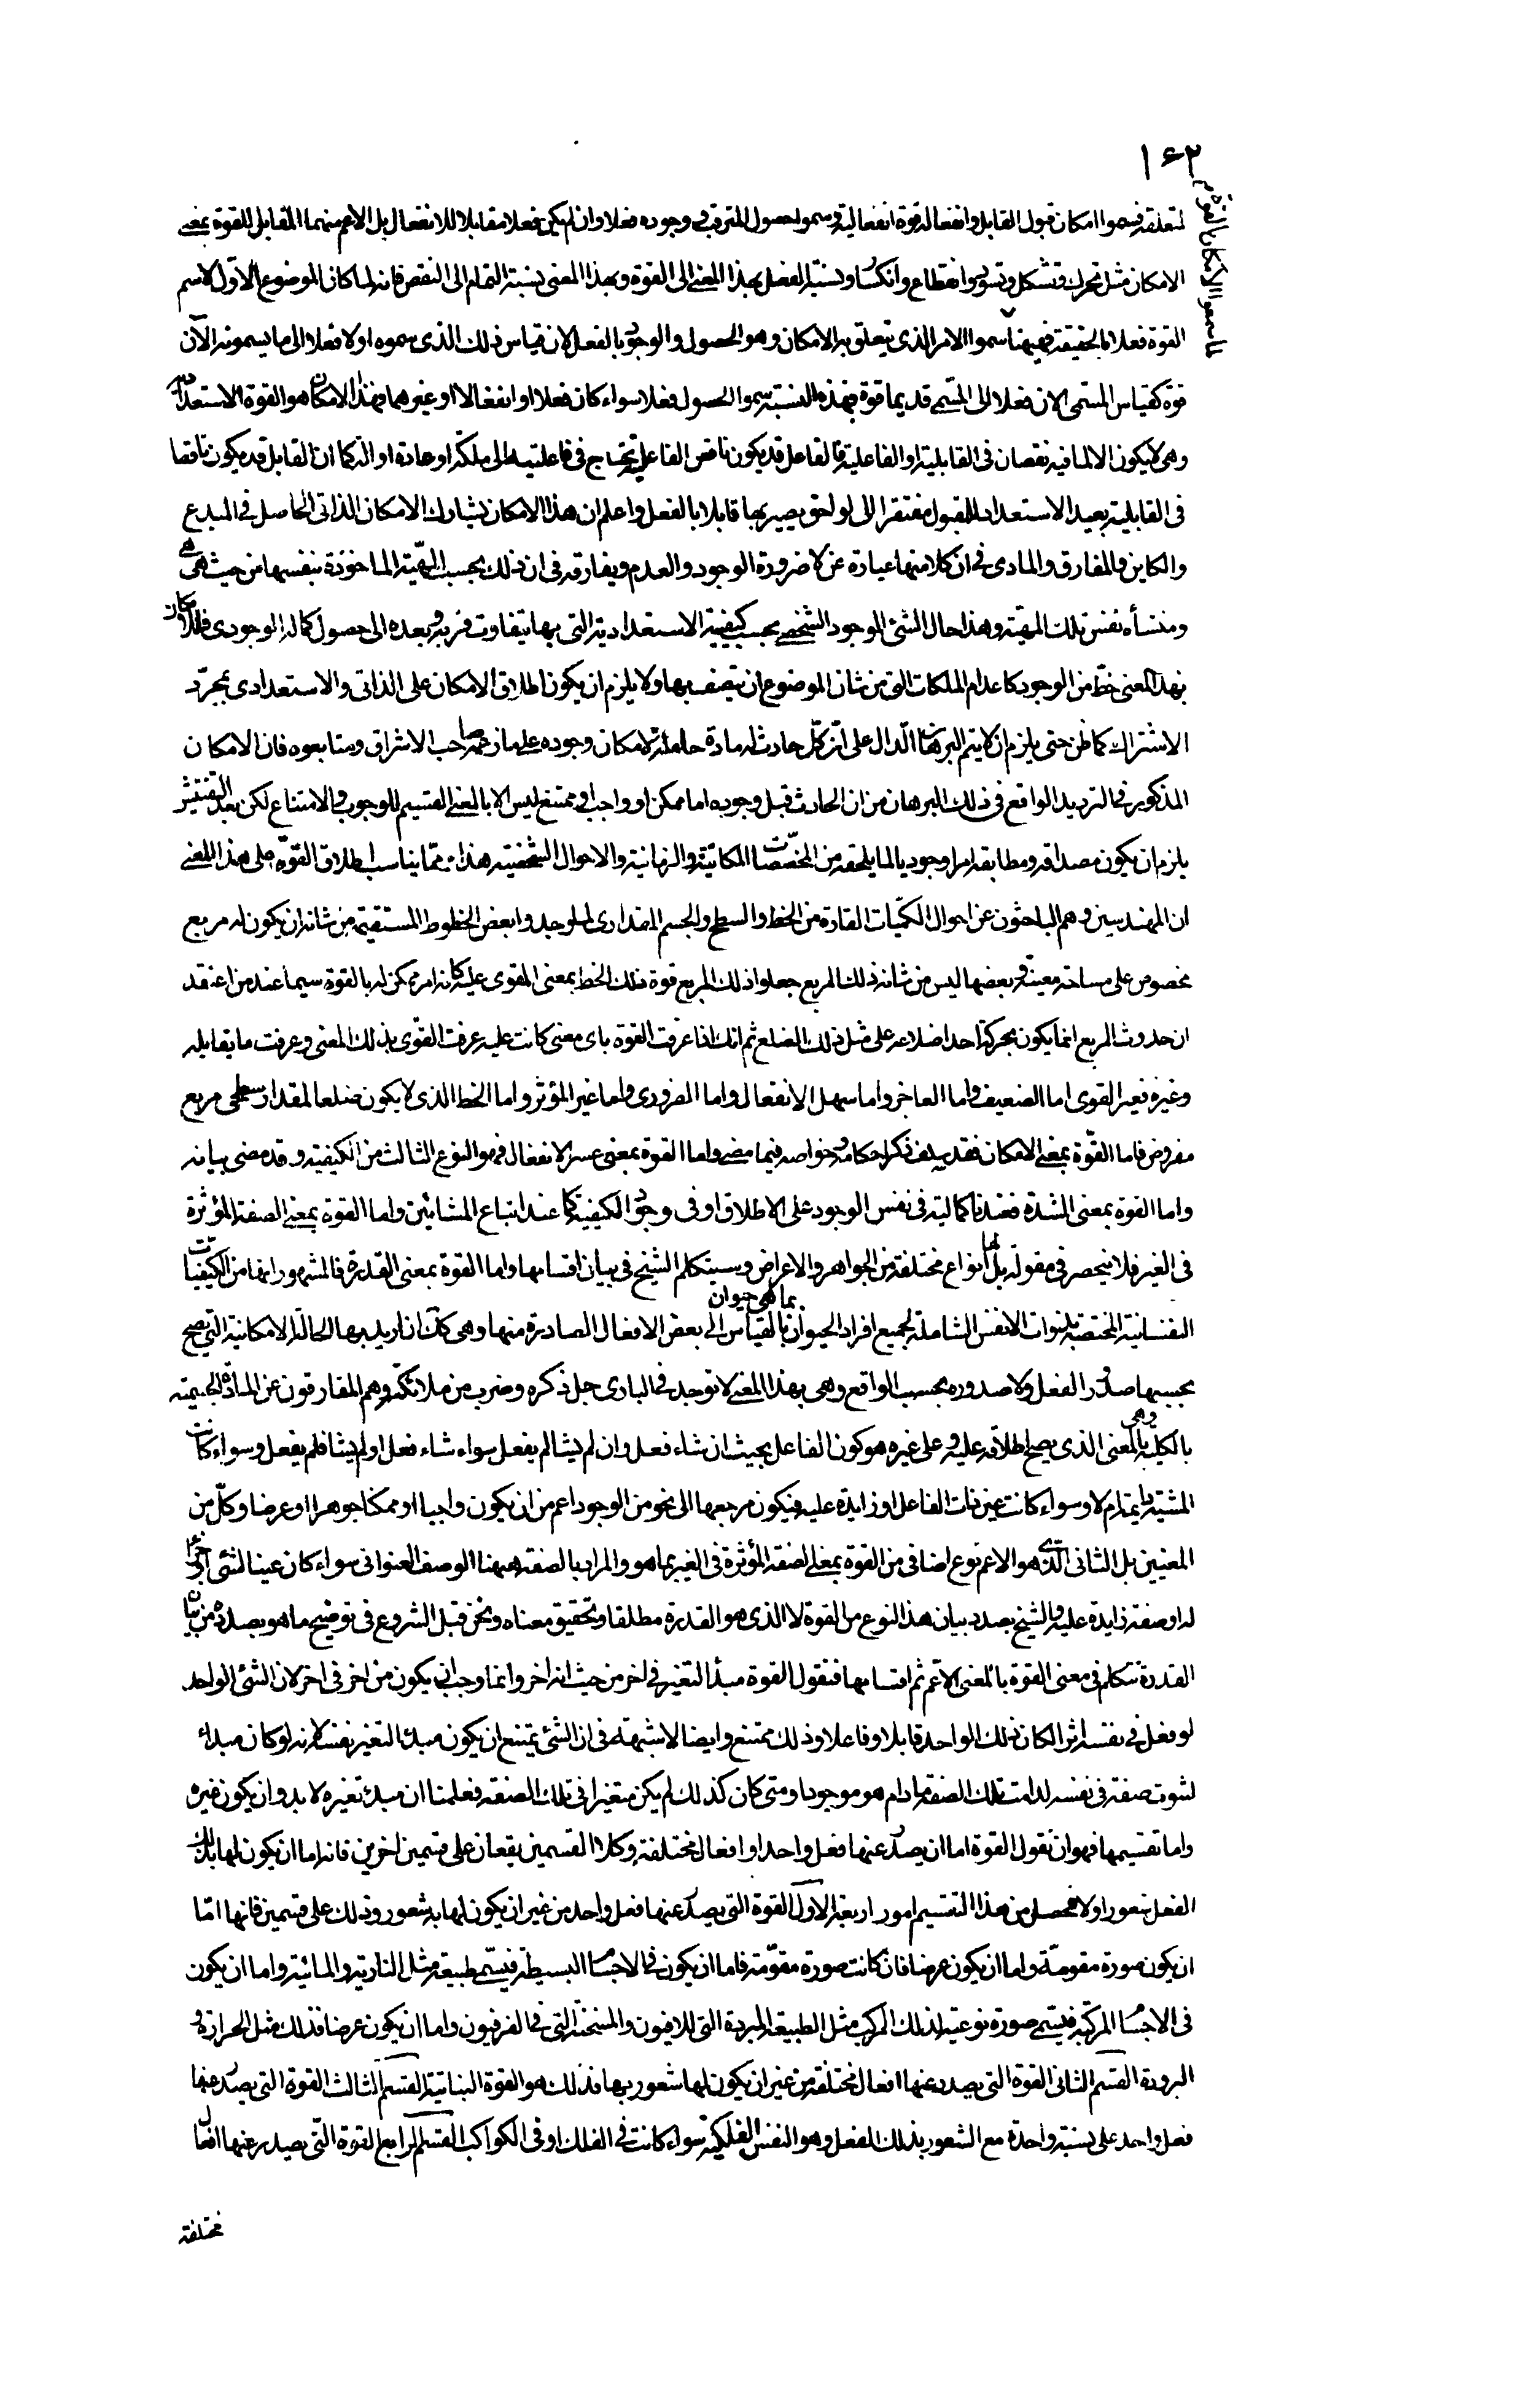 ١٦٢
لما سموا الامكان بالقوة
لمتعلقه فسموا امكان قبول القابل وانفعاله قوة انفعالية وسموا حصول المترتب في وجوده فعلا وان لم يكن فعلا مقابلا للانفعال بل الاعم منهما المقابل للقوة بمعنى
الامكان مثل تحرك وتشكل وتسود وانقطاع وانكسار ونسبة الفعل بهذا المعنى الى القوة وبهذا المعنى نسبة التمام الى النقص فانه لما كان الموضوع الاول لاسم
القوة فعلا بالحقيقة فههنا سموا الامر الذى يتعلق به الامكان وهو الحصول والوجود بالفعل لان قياس ذلك الذى سموه اولا فعلا الى ما يسمونه الآن
قوة كقياس المسمى الان فعلا الى المسمى قديما قوة فبهذه النسبة سموا الحصول فعلا سواء كان فعلا او انفعالا او غيرهما فهذا الامكان هو القوة الاستعدادية
وهى لا يكون الا لما فيه نقصان فى القابلية او الفاعلية فالفاعل قد يكون ناقص الفاعلية يحتاج فى فاعليته الى ملكة او عادة او آلة كما ان القابل قد يكون ناقصا
فى القابلية بعيد الاستعداد للقبول مفتقرا الى لواحق يصير بها قابلا بالفعل واعلم ان هذا الامكان يشارك الامكان الذاتى الحاصل فى المبدع
والكاين والمفارق والمادى فى ان كلا منهما عبارة عن لا ضرورة الوجود والعدم ويفارقه فى ان ذلك بحسب المهية الماخوذة بنفسها من حيث هى هى
ومنشأه نفس تلك المهية وهذا حال الشئ الموجود الشخصى بحسب كيفيته الاستعدادية التى بها يتفاوت قربه وبعده الى حصول كماله الوجودى فللامكان
بهذا المعنى حظ من الوجود كاعدام الملكات التى من شان الموضوع ان يتصف بها ولا يلزم ان يكون اطلاق الامكان على الذاتى والاستعدادى بمجرد
الاشتراك كما ظن حتى يلزم ان لا يتم البرهان الدال على ان كل حادث له مادة حاملة لامكان وجوده على ما زعمه صاحب الاشراق ومتابعوه فان الامكان
المذكور فى الترديد الواقع فى ذلك البرهان من ان الحادث قبل وجوده اما ممكن او واجب او ممتنع ليس الا بالمعنى القسيم للوجوب والامتناع لكن بعد التفتيش
يلزم ان يكون مصداقه ومطابقه امرا وجوديا لما يلحقه من المخصصات المكانية والزمانية والاحوال الشخصية هذا ومما يناسب اطلاق القوة على هذا المعنى
ان المهندسين وهم الباحثون عن احوال الكميات القارة من الخط والسطح والجسم المقدارى لما وجدوا بعض الخطوط المستقيمة من شانه ان يكون له مربع
مخصوص على مساحة معينة وبعضها ليس من شانه ذلك المربع جعلوا ذلك المربع قوة ذلك الخط بمعنى المقوى عليه كانه امر ممكن له بالقوة سيما عند من اعتقد
ان حدوث المربع انما يكون بحركة احد اضلاعه على مثل ذلك الضلع ثم انك اذا عرفت القوة باى معنى كانت عليه عرفت القوى بذلك المعنى وعرفت ما يقابله
وغيره فغير القوى اما الضعيف واما العاجز واما سهل الانفعال واما الضرورى واما غير المؤثر واما الخط الذى لا يكون ضلعا لمقدار سطحى مربع
مفروض فاما القوة بمعنى الامكان فقد سلف ذكر احكامه وخواصه فيما مضى واما القوة بمعنى عسر الانفعال فهو النوع الثالث من الكيفية وقد مضى بيانه
واما القوة بمعنى الشدة فعندنا كمالية فى نفس الوجود على الاطلاق او فى وجود الكيفية كما عند اتباع المشائين واما القوة بمعنى الصفة المؤثرة
فى الغير فلا ينحصر فى مقولة بل لها انواع مختلفة من الجواهر والاعراض وسيتكلم الشيخ فى بيان اقسامها واما القوة بمعنى القدرة فالمشهور انها من الكيفيات
النفسانية المختصة بذوات الانفس الشاملة لجميع افراد الحيوان بما هى حيوان بالقياس الى بعض الافعال الصادرة منها وهى كك ان اريد بها الحالة الامكانية التى يصح
بحسبها صدور الفعل ولا صدوره بحسب الواقع وهى بهذا المعنى لا توجد فى البارى جل ذكره وضرب من ملائكته وهم المفارقون عن المادة الجسمية
بالكلية وهى بالمعنى الذى يصح اطلاقه عليه وعلى غيره هو كون الفاعل بحيث ان شاء فعل وان لم يشا لم يفعل سواء شاء ففعل او لم يشا فلم يفعل وسواء كانت
المشية دايمة ام لا وسواء كانت عين ذات الفاعل او زايدة عليه فيكون مرجعها الى نحو من الوجود اعم من ان يكون واجبا او ممكنا جوهرا او عرضا وكل من
المعنيين بل الثانى الذى هو الاعم نوع اضافى من القوة بمعنى الصفة المؤثرة فى الغير بما هو والمراد بالصفة ههنا الوصف العنوانى سواء كان عينا لشئ او جزأ
له او صفة زايدة عليه والشيخ بصدد بيان هذا النوع من القوة لا الذى هو القدرة مطلقا وتحقيق معناه ونحن قبل الشروع فى توضيح ما هو بصدده من بيان
القدرة نتكلم فى معنى القوة بالمعنى الاعم ثم اقسامها فنقول القوة مبدأ التغير فى اخر من حيث انه اخر وانما وجب ان يكون من اخر فى اخر لان الشئ الواحد
لو فعل فى نفسه اثرا لكان ذلك الواحد قابلا وفاعلا وذلك ممتنع وايضا لا شبهة فى ان الشئ يمتنع ان يكون مبدئا لتغير نفسه لانه لو كان مبداء
لثبوت صفة فى نفسه لدامت تلك الصفة مادام هو موجودا ومتى كان كذلك لم يكن متغيرا فى تلك الصفة فعلمنا ان مبدء تغيره لا بد وان يكون غيره
واما تقسيمها فهو ان نقول القوة اما ان يصدر عنها فعل واحد او افعال مختلفة وكلا القسمين يقعان على قسمين اخرين فانه اما ان يكون لها بذلك
الفعل شعور او لا فحصل من هذا التقسيم امور اربعة الاول القوة التى يصدر عنها فعل واحد من غير ان يكون لها به شعور وذلك على قسمين فانها اما
ان يكون صورة مقومة واما ان يكون عرضا فان كانت صورة مقومة فاما ان يكون فى الاجسام البسيطة فيسمى طبيعة مثل النارية والمائية واما ان يكون
فى الاجسام المركبة فيسمى صورة نوعية لذلك المركب مثل الطبيعة المبردة التى للافيون والمسخنة التى فى الفرفيون واما ان يكون عرضا فذلك مثل الحرارة و
البرودة القسم الثانى القوة التى يصدر عنها افعال مختلفة من غير ان يكون لها شعور بها فذلك هو القوة النباتية القسم الثالث القوة التى يصدر عنها
فعل واحد على نسبة واحدة مع الشعور بذلك الفعل وهو النفس الفلكية سواء كانت فى الفلك او فى الكواكب القسم الرابع القوة التى يصدر عنها افعال
مختلفة